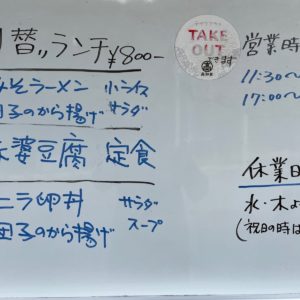 替ランチ ¥800-
みそラーメン 小ライス
団子のから揚げ サラダ
麻婆豆腐 定食
ニラ卵丼 サラダ
団子のから揚げ スープ
TAKE OUT
できます
営業時
11:30〜
17:00〜
休業日
水・木よ
(祝日の時は